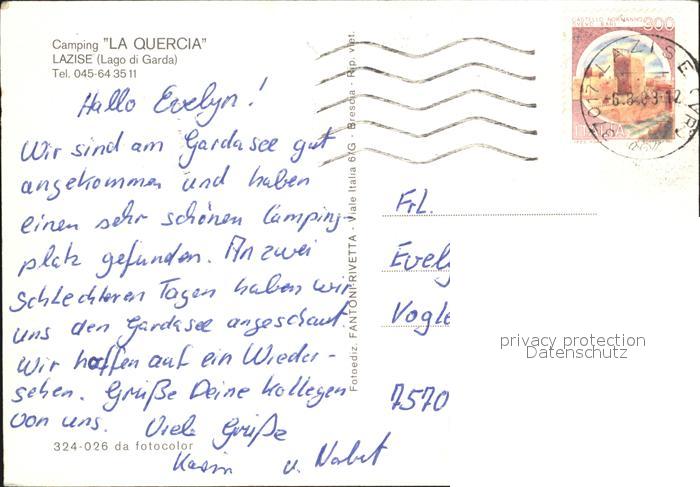 Camping "LA QUERCIA"
LAZISE (Lago di Garda)
Tel. 045-64 35 11
Hallo Evelyn!
Wir sind am Gardasee gut
angekommen und haben
einen sehr schönen Camping-
platz gefunden. An zwei
schlechteren Tagen haben wir
uns den Gardasee angeschaut.
Wir hoffen auf ein Wieder-
sehen. Grüße Deine Kollegen
von uns. Viele Grüße
u. Norbert
324-026 da fotocolor
Fotoediz. FANTONI-RIVETTA - Viale Italia 6/G - Brescia - Rip. viet.
CASTELLO NORMANNO
SVEVO - BARI
300
ITALIA
37017 LAZISE
Frl.
Evely
Vogle
7570
privacy protection
Datenschutz